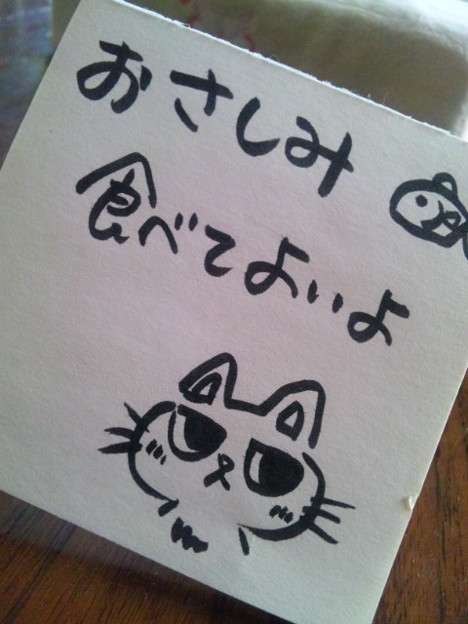 おさしみ
食べてよいよ